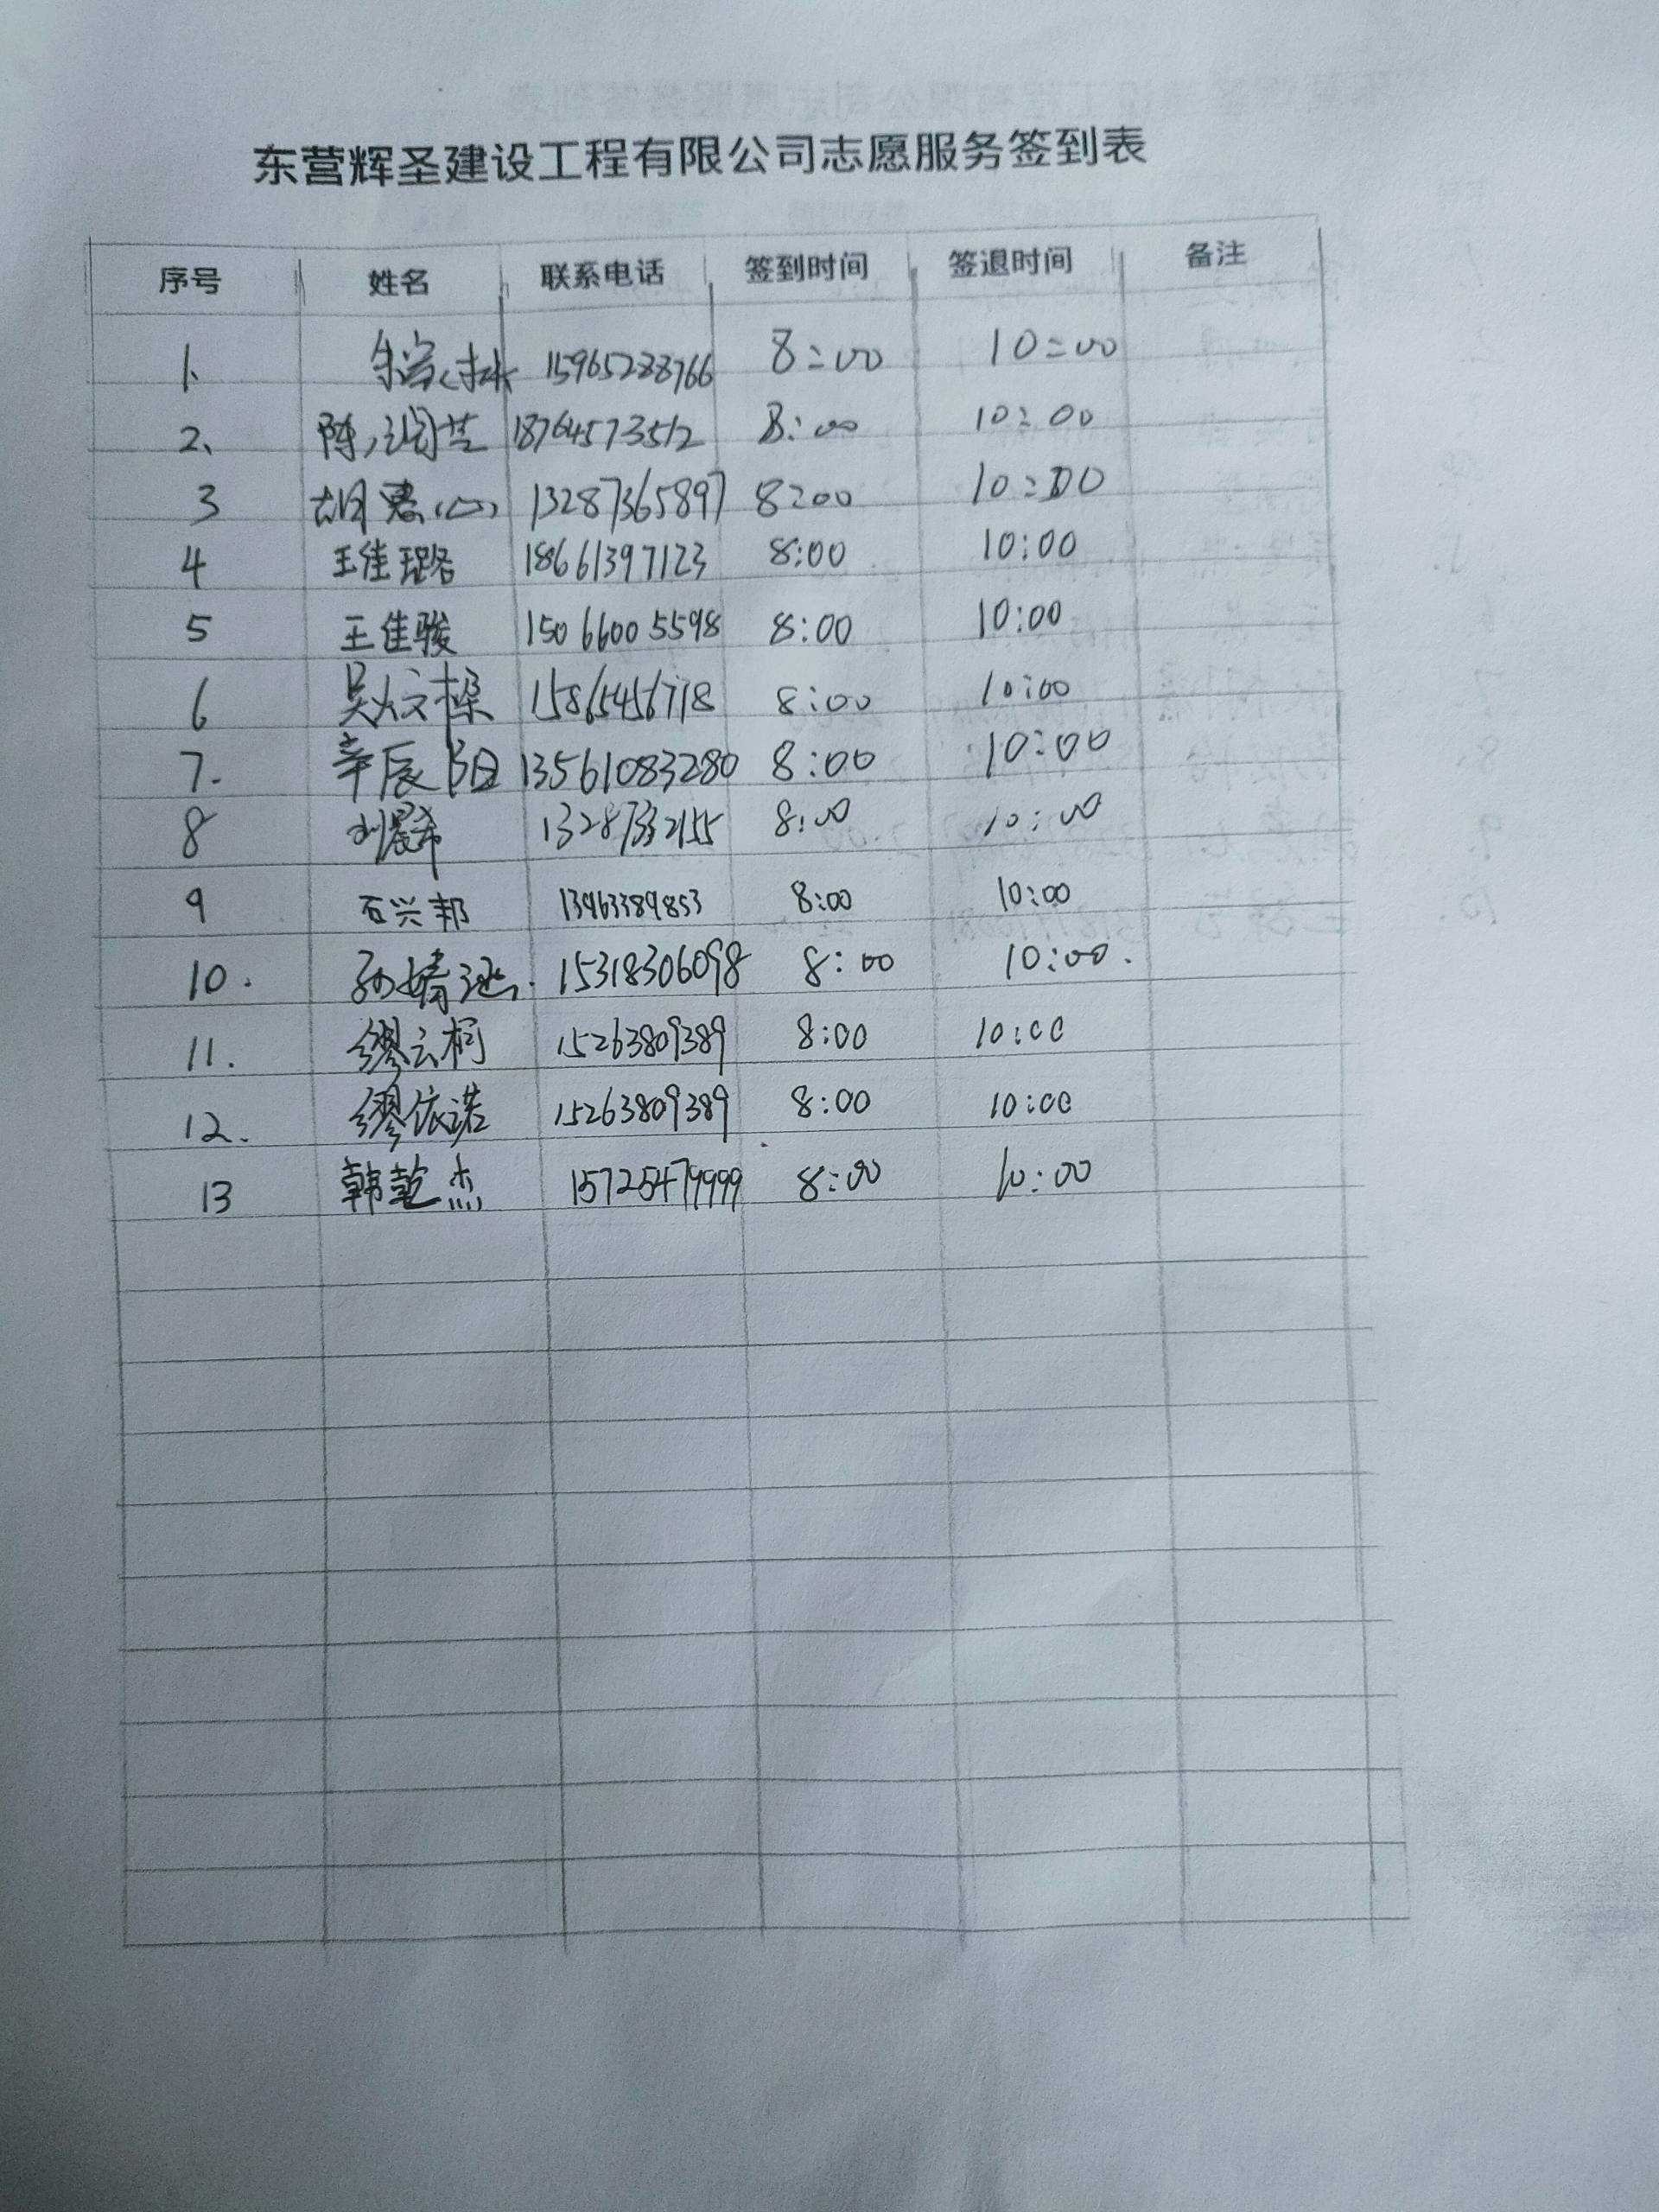 东营辉圣建设工程有限公司志愿服务签到表
序号 姓名 联系电话 签到时间 签退时间 备注
1、 15965288766 8:00 10:00
2、 陈润芝 18764573512 8:00 10:00
3 胡 13287365897 8:00 10:00
4 王佳璐 18661397123 8:00 10:00
5 王佳骏 15066005598 8:00 10:00
6 吴文栎 15865456718 8:00 10:00
7. 辛辰阳 13561083280 8:00 10:00
8 刘晨希 13287332155 8:00 10:00
9 石兴邦 13963389853 8:00 10:00
10. 孙婧 15318306098 8:00 10:00.
11. 缪云柯 15263809389 8:00 10:00
12. 缪依诺 15263809389 8:00 10:00
13 韩乾杰 15725479999 8:00 10:00